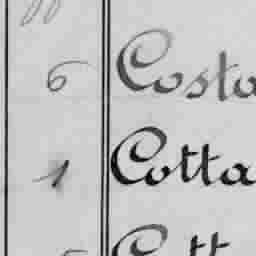 6 Costa
1 Cotta